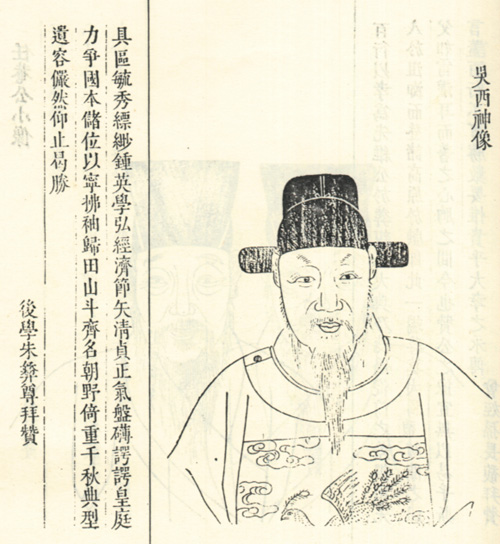 吳西神像
具區毓秀縹緲鍾英學弘經濟節矢清貞正氣盤礴諤諤皇庭
力爭國本儲位以寧拂袖歸田山斗齊名朝野倚重千秋典型
遺容儼然仰止曷勝
後學朱彝尊拜贊